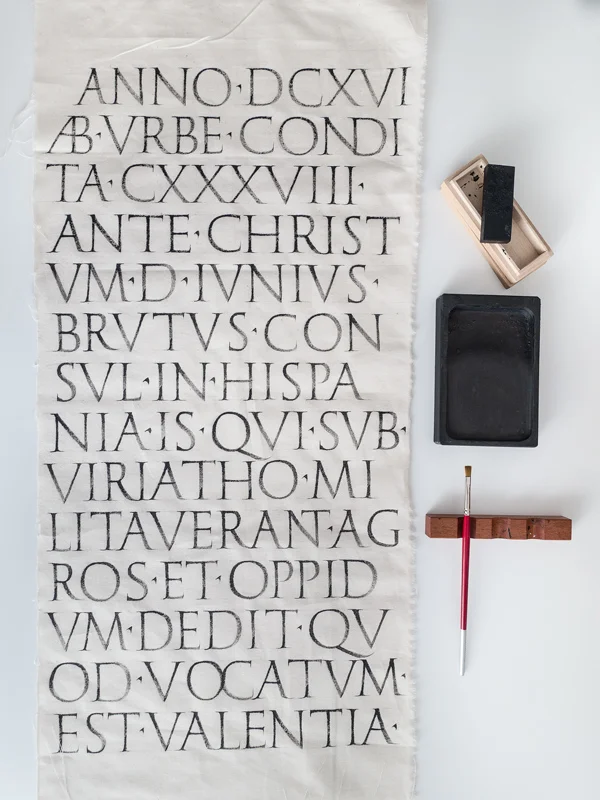 ANNO·DCXVI
AB·VRBE·CONDI
TA·CXXXVIII·
ANTE·CHRIST
VM·D·IVNIVS·
BRVTVS·CON
SVL·IN·HISPA
NIA·IS·QVI·SVB·
VIRIATHO·MI
LITAVERANT·AG
ROS·ET·OPPID
VM·DEDIT·QV
OD·VOCATVM·
EST·VALENTIA·